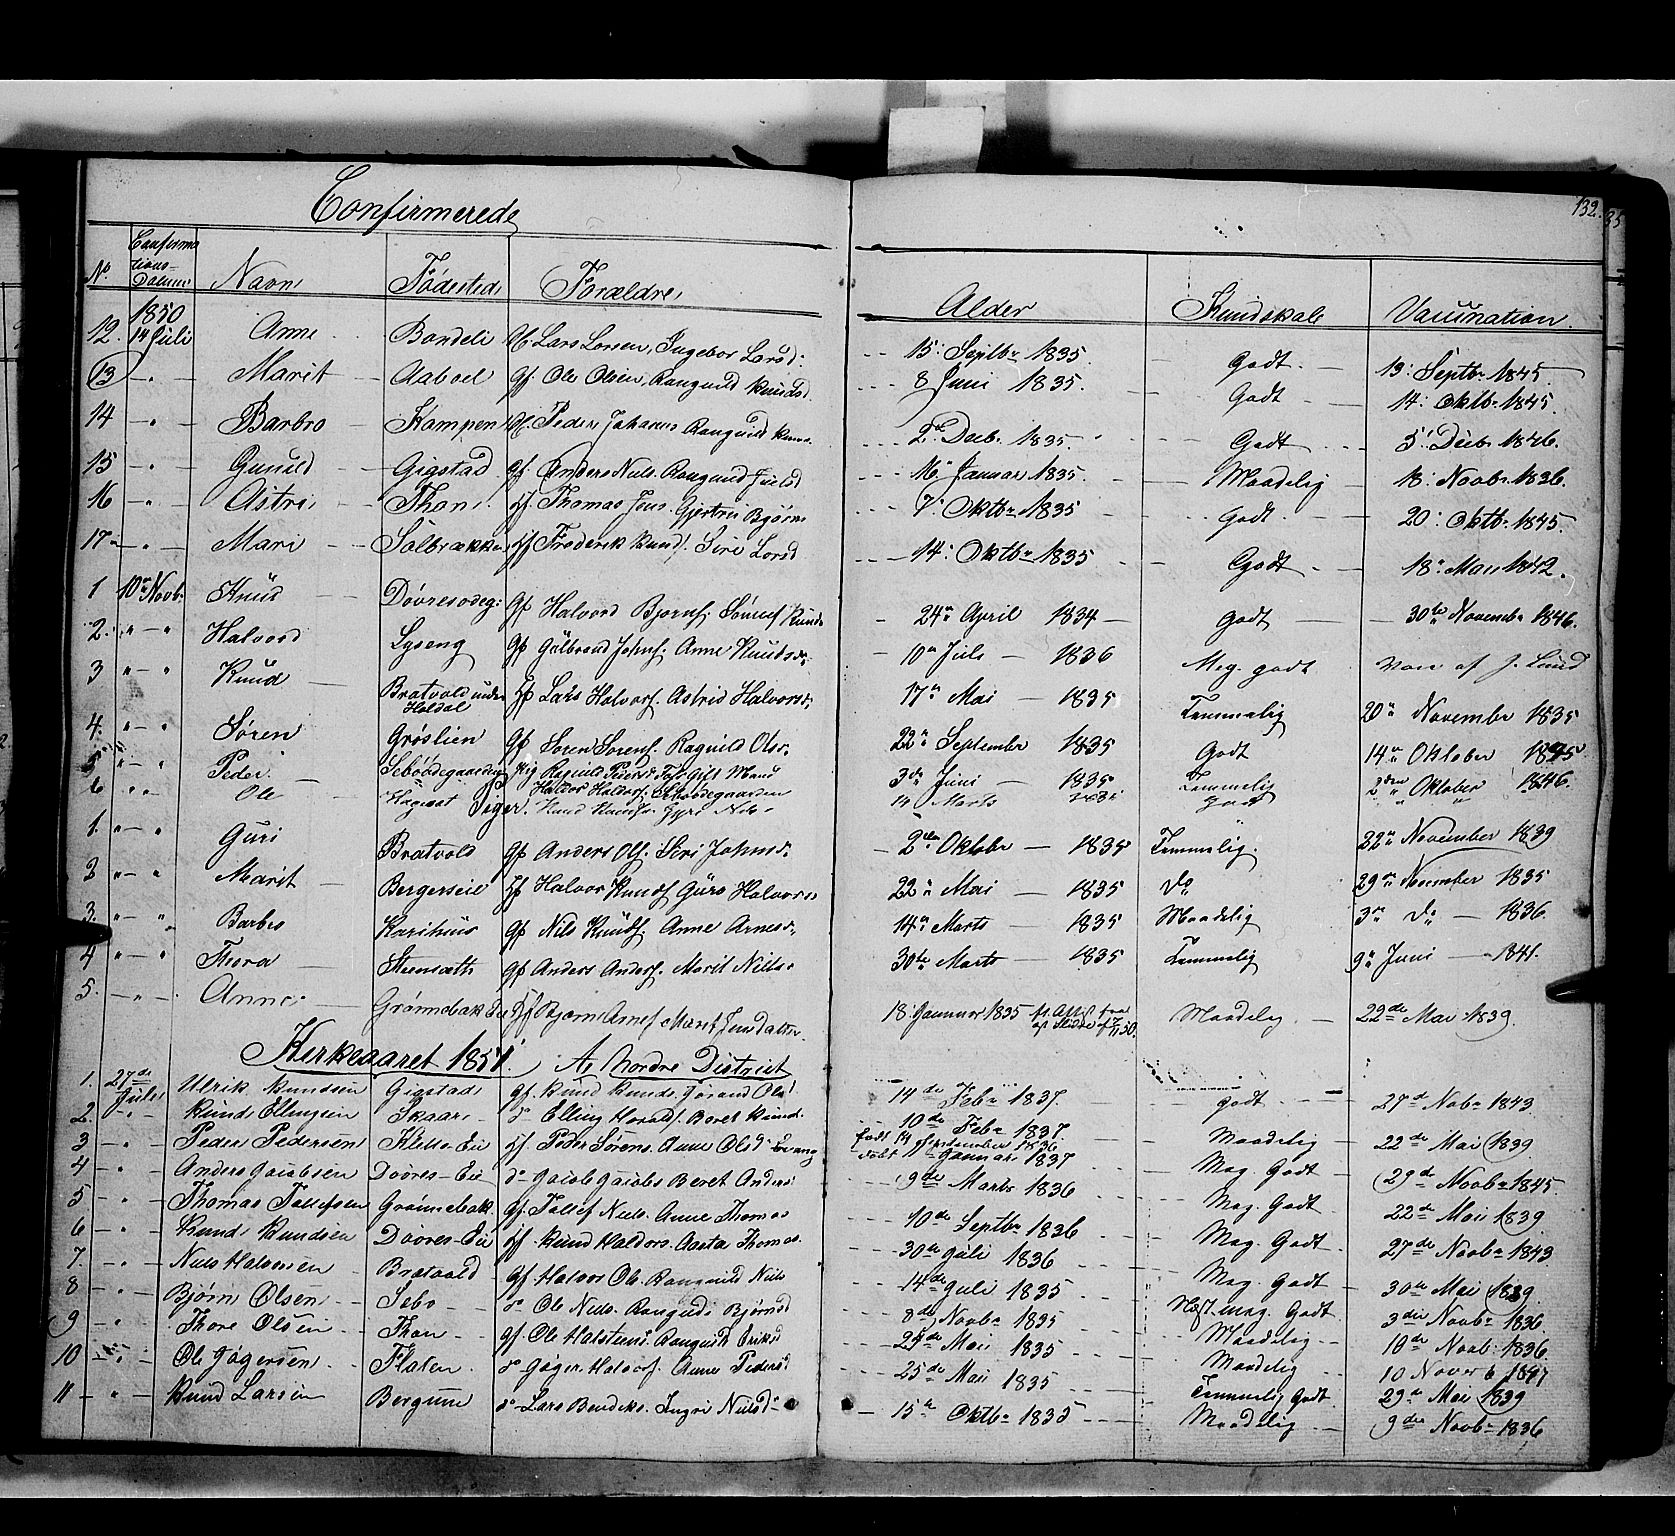 Confirmerede
132.
No. Confirmations-Datum Navn Fødested Forældre Alder Kundskab Vaccination
1850
12. 14 Juli Anne Bandeli Lars Larsen, Ingebor Larsd: 15: Septbr 1835. Godt 13: Septbr 1845.
13 Marit Aaboel gf. Ole Olsen, Rangnild Knudsd. 8 Juni 1835. Godt 14: Oktbr 1845.
14 Barbro Kampen Peder Johanns Rangnild 2 Decbr 1835. Godt 5: Decbr 1846.
15 Gunild Gigstad gf Anders Niels. Rangnild 16 Januar 1835. Maadelig 18: Novbr 1836.
16 Astri Thon gf. Thomas Jens. Gjertru Bjørns 7: Oktbr 1835 Godt 20: Oktbr 1845.
17 Mari Sølbrække gf Frederik Knud. Siri Larsd 14: Oktbr 1835 Godt 18: Mai 1842.
1 10 Novb. Knud Døvresødeg: gf Halvord Bjørns. Knuds 24 April 1834 Godt 30te Novembr 1846.
2. Halvord Lyseng gf Gulbrand Johns. Anne Knudsdr. 10 Juli 1836 Meg. godt vac af J. Lund
3 Knud Bratvold under Holdal gf Lars Halvors. Astrid Halvorsdr. 17 Mai 1835 Temmelig 20 Novembr 1835
4. Søren Grøslien gf Søren Sørens. Ragnild Olsdr. 22 Septembr 1835 Godt 14 Oktober 1845
5 Peder Sebødegaarden Pig Ragnild Pedersd. gift Mand Haldor Haldors. Sebødegaarden 3de Juni 1835 Temmelig 2den Oktober 1846.
6 Ole Knud Knuds. Gyri Nils 14 Marts 1835 Godt
1. Guri Bratvold gf Anders Ols. Siri Johnsd. 2den Oktobr 1835 Temmelig. 22 November 1839
2 Marit Bergerseie gf Halvor Knuds Guro Halvors 22 Mai 1835 do 29 November 1835
3. Barbro Karihuus gf Nils Knuds. Anne Arnesd. 14 Marts 1835 Maadelig 3 do 1836.
4 Thora Steensæth gf Anders Anders. Marit Nilsd. 30te Marts 1835 Temmelig 9 Juni 1841.
5. Anne Grønnebak Eie gf Bjørn Arnes Marit 18: Januar 1835 Maadelig 22de Mai 1839.
Kirkeaaret 1851. A, Nordre District
1. 27de Juli Ulrik Knudsen Gigstad gf. Knud Knuds. Jørand Ols 14de Febr 1837. godt 27d Nobr 1843.
2. Knud Ellingsen Skaar do Elling Harald. Beret Knud. 10de Febr 1837 Maadelig 22de Mai 1839.
3 Peder Pedersen Klette-Eie gf Peder Sørens. Anne Olsd. født 14 September 1836 døbt 11 Januar 1837 Mag. Godt 29de Novbr 1845.
4 Anders Jacobsen Døvres-Eie do Jacob Jacobs Beret Anders 9de Marts 1836 Mag. Godt 22de Mai 1839
5 Thomas Tollefsen Grønnebak gf. Tollef Niels. Anne Thomas 10de Septbr 1836 Mag. Godt 27de Novbr 1843
6 Knud Knudsen Døvres-Eie gf Knud Haldors. Aasta Thomas. 30te Juli 1836 Mag. Godt 30te Mai 1839.
7. Niels Halvorsen Bratvold gf Halvor Ols. Rangnild Niels 14de Juli 1835 Næst mag. Godt 3die Novbr 1836
8 Bjørn Olsen Sebo do Ole Niels. Rangnild Bjørnsd 8de Novbr 1835 Maadelig 10de Novb. 1836
9 Thore Olsen Thon gf. Ole Halstens. Rangnild Eriksd 24de Mai 1835 Maadelig 10 Novbr 1847
10 Ole Jøgersen Flaten do Jøger Halvors. Anne Pedersd 25de Mai 1835 Temmelig Godt 29 Mai 1839
11 Knud Larsen Bergum do Lars Bendiks. Ingri Nielsd 15 Oktbr 1835 Maadelig 9de Novbr 1836